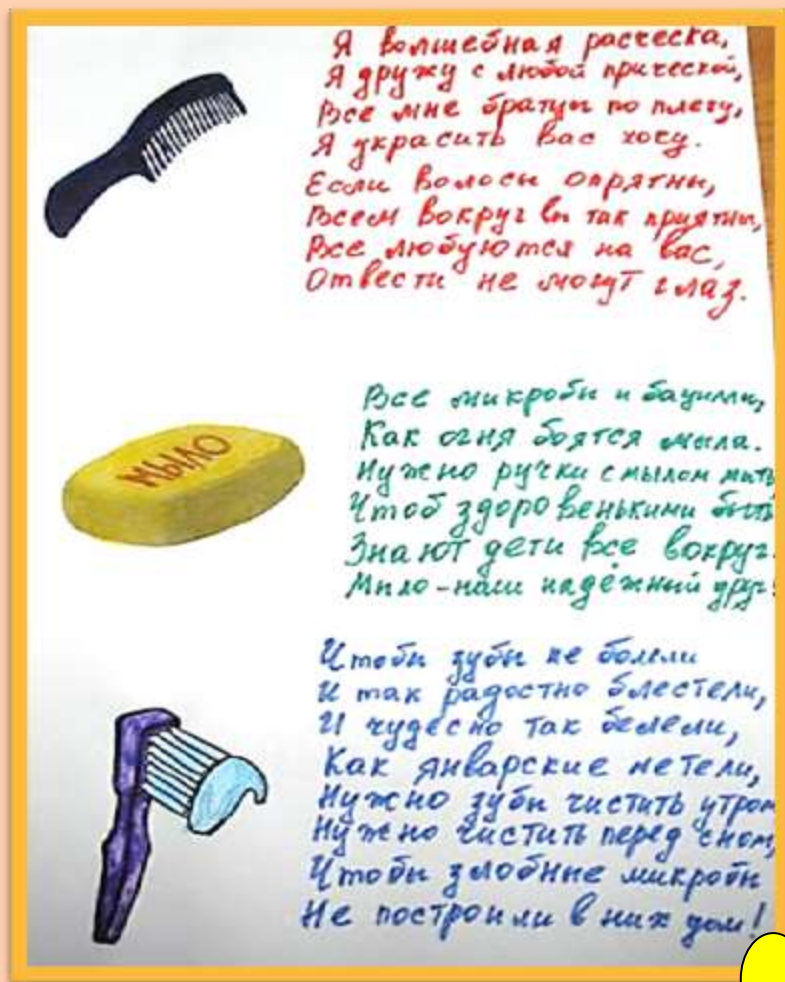 Я волшебная расческа,
Я дружу с любой прической,
Все мне братцы по плечу,
Я украсить вас хочу.
Если волосы опрятны,
Всем вокруг вы так приятны,
Все любуются на вас,
Отвести не могут глаз.
Все микробы и бациллы,
Как огня боятся мыла.
МЫЛО
Нужно ручки с мылом мыть
Чтоб здоровенькими быть
Знают дети все вокруг:
Мыло-наш надёжный друг!
Чтобы зубы не болели
И так радостно блестели,
И чудесно так белели,
Как январские метели,
Нужно зубы чистить утром
Нужно чистить перед сном,
Чтобы злобные микробы
Не построили в них дом!